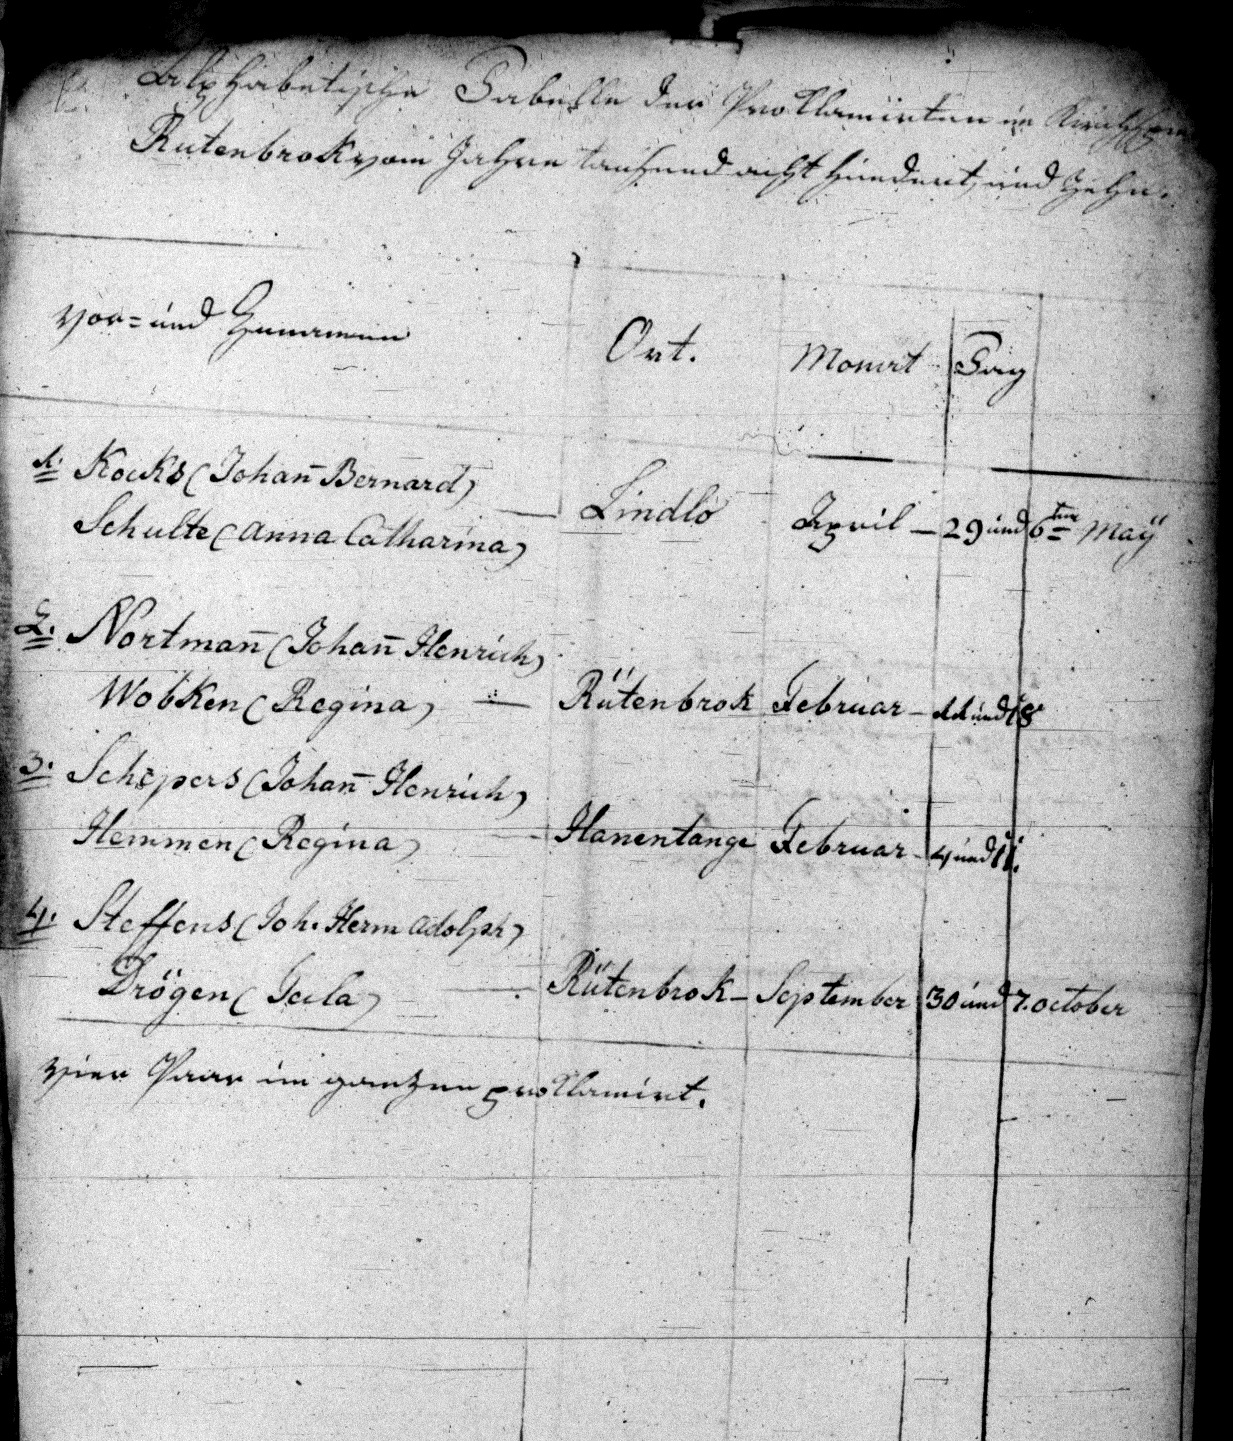 Alphabetische Tabelle der Proklamirten im Kirchspiel
Rutenbrok vom Jahre tausend acht hundert und Zehn.
Vor= und Zunamen
Ort.
Monat
Tag
1. Kocks (Johan̄ Bernard)
Schulte (Anna Catharina) — Lindlo April — 29 und 6ten Maÿ
2. Nortman̄ (Johan̄ Henrich)
Wobken (Regina) — Rütenbrok Februar — 11 und 18
3. Schepers (Johan̄ Henrich)
Hemmen (Regina) — Hanentange Februar — 4 und 11.
4. Steffens (Joh. Herm Adolph)
Drögen (Tecla) — Rütenbrok — September 30 und 7. october
Vier Paar im ganzen proklamirt.